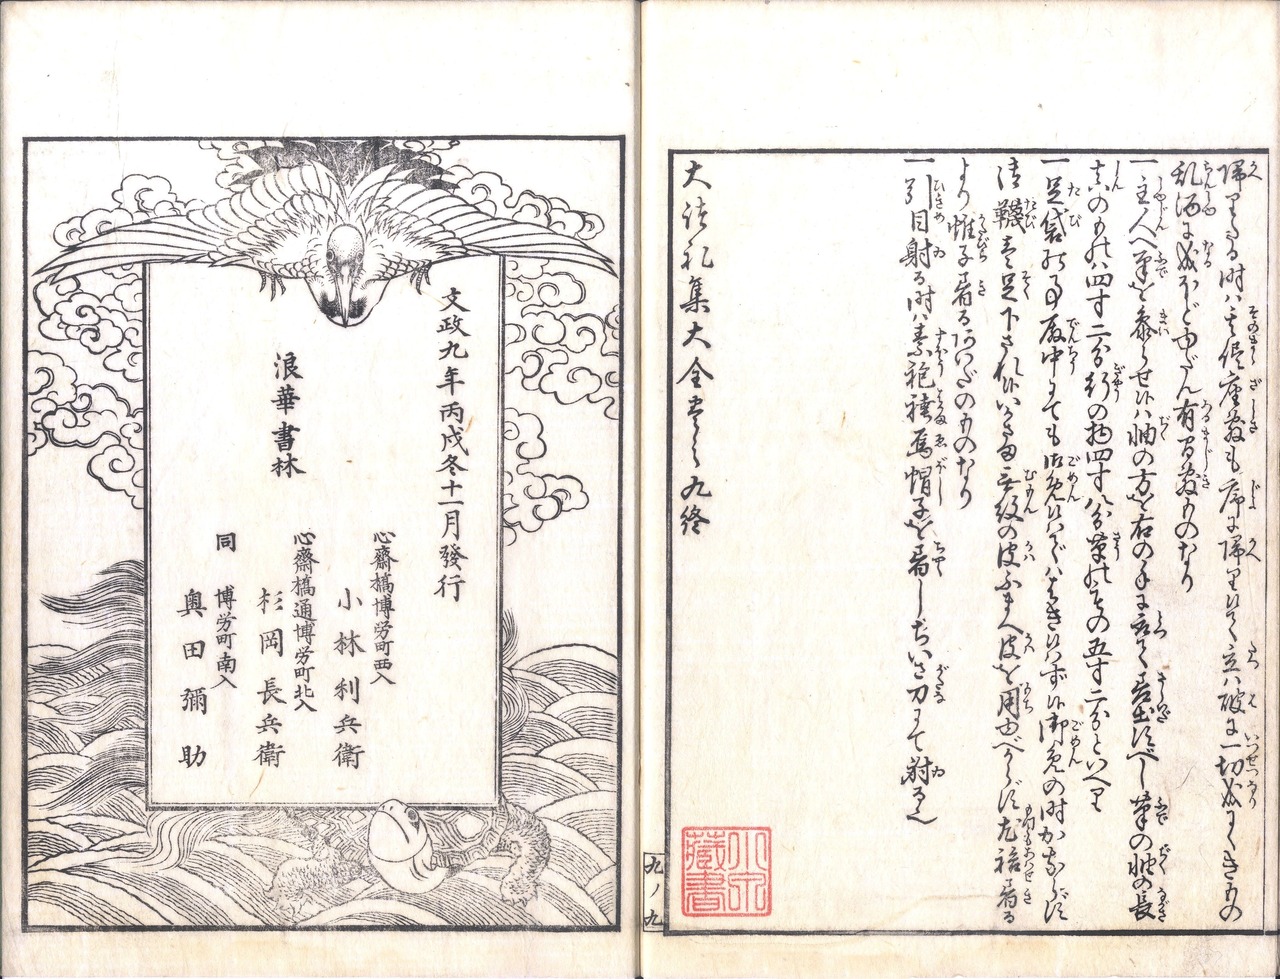 帰りたる時は其侭座敷も席に帰り立は破に一切成にくきもの
乱酒に成ほどゆだん有間敷ものなり
一主人へ筆を参らせ候は軸の方を右の手に取て差出すべし筆の軸の長
四寸二分行の物四寸八分草の五寸二分といへり
一足袋の事殿中にても御免候はではき候はず候御免の時かならず
韈を足下され候無紋の皮ふすべ皮を用尤袷着る
より帷子着るあいだのものなり
一引目射る時は素袍襖烏帽子を着しちいさ刀にて射る也
大諸礼集大全巻之九終
九ノ九
文政九年丙戌冬十一月發行
浪華書林
心齋橋博労町西入
小林利兵衛
心齋橋通博労町北入
杉岡長兵衛
同 博労町南入
奥田彌助